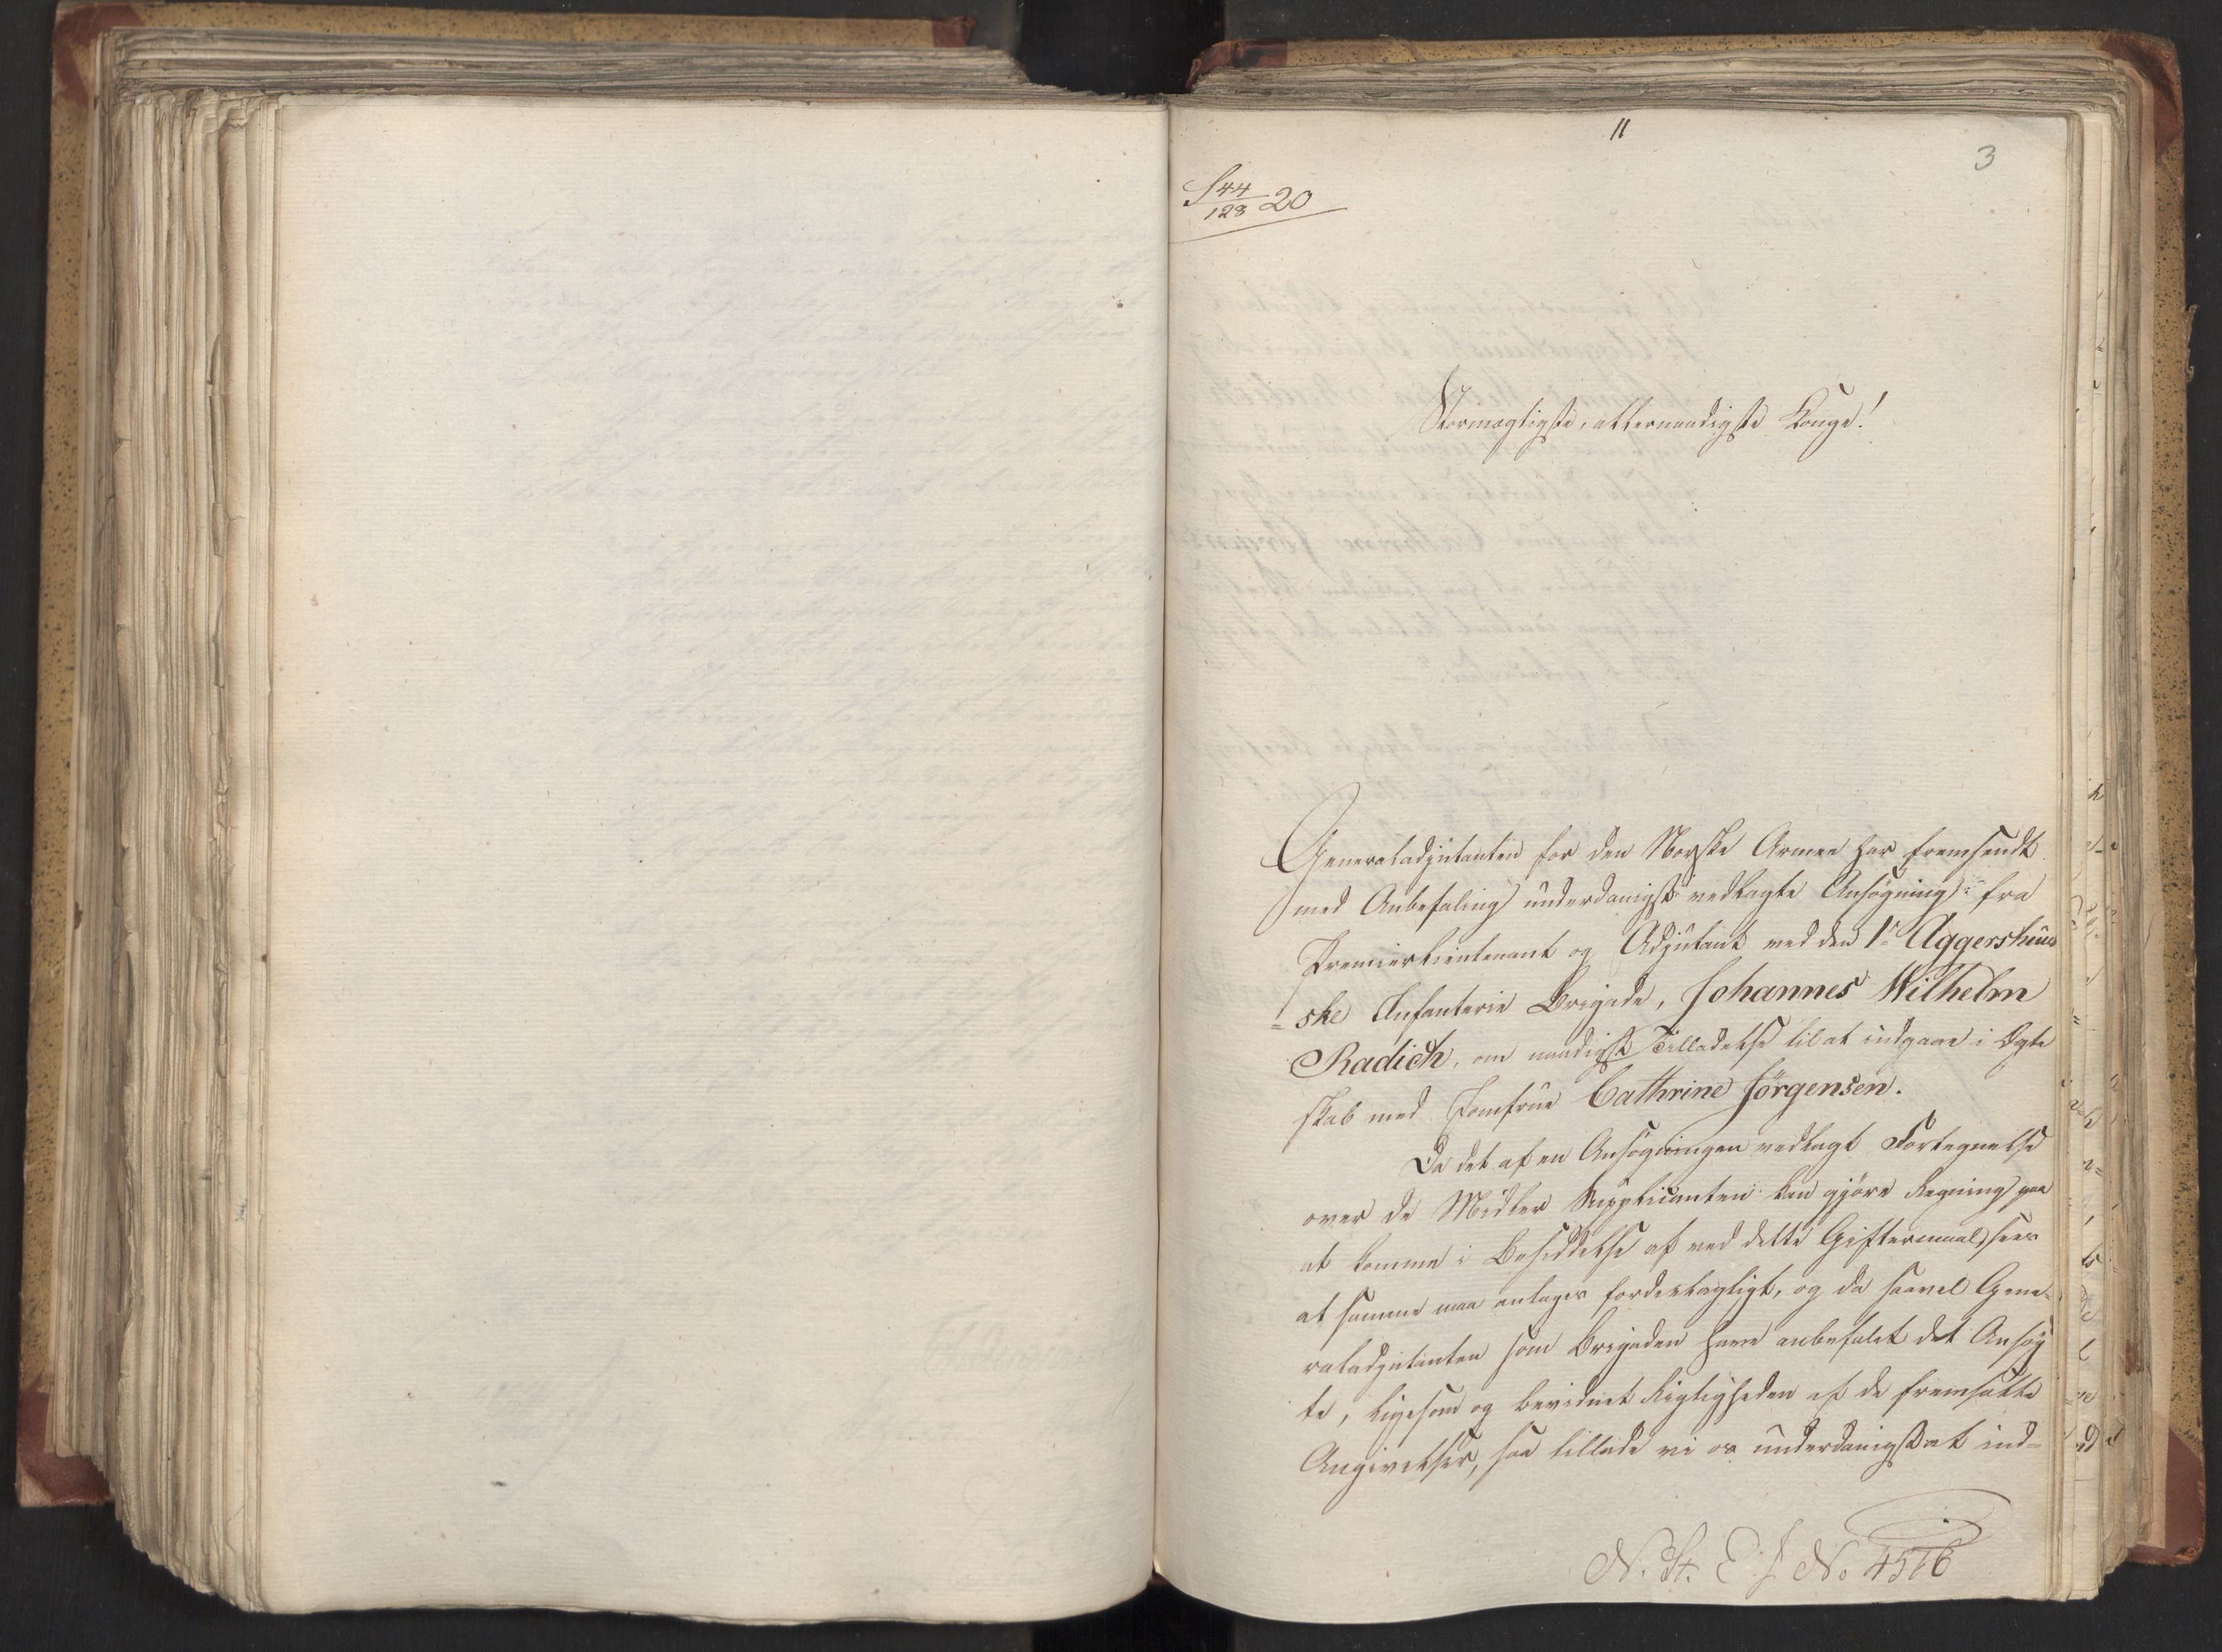 11
3
S 44/128 20
Stormægtigste, allernaadigste Konge!
Generaladjutanten for den Norske Armee har fremsendt
med Anbefaling underdanigst vedlagte Ansøgning fra
Premierlieutenant og Adjutant ved den 1ste Aggershuus
=ske Infanterie Brigade, Johannes Wilhelm
Radich, om naadigst Tilladelse til at indgaae i Ægte
skab med Jomfrue Cathrine Jörgensen.
Da det af en Ansøgningen vedlagt Fortegnelse
over de Midler Supplicanten kan gjöre Regning paa
at komme i Besiddelse af ved dette Giftermaal, sees
at samme maa antages fordeelagtigt, og da saavel Gene-
raladjutanten som Brigaden have anbefalet det Ansøg
te, ligesom og bevidnet Rigtigheden af de fremsatte
Angivelser, saa tillade vi os underdanigst at ind=
N. St. E. J. No. 4516